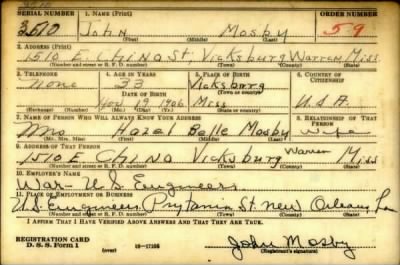 3510
SERIAL NUMBER 1. NAME (Print) ORDER NUMBER
3510 John Mosby 59
(First) (Middle) (Last)
2. ADDRESS (Print)
1510 E China St, Vicksburg Warren Miss
(Number and street or R. F. D. number) (Town) (County) (State)
3. TELEPHONE 4. AGE IN YEARS 5. PLACE OF BIRTH 6. COUNTRY OF CITIZENSHIP
None 33 Vicksburg
DATE OF BIRTH (Town or county)
Nov 19 1906 Miss U S A
(Mo.) (Day) (Yr.) (State or country)
7. NAME OF PERSON WHO WILL ALWAYS KNOW YOUR ADDRESS 8. RELATIONSHIP OF THAT PERSON
Mrs Hazel Belle Mosby Wife
(Mr., Mrs., Miss) (First) (Middle) (Last)
9. ADDRESS OF THAT PERSON
1510 E. China Vicksburg Warren Miss
(Number and street or R. F. D. number) (Town) (County) (State)
10. EMPLOYER'S NAME
War - U S Engineers
11. PLACE OF EMPLOYMENT OR BUSINESS
U.S. Engineers Prytania St New Orleans La
(Number and street or R. F. D. number) (Town) (County) (State)
I AFFIRM THAT I HAVE VERIFIED ABOVE ANSWERS AND THAT THEY ARE TRUE.
REGISTRATION CARD
D. S. S. Form 1 16-17105 John Mosby